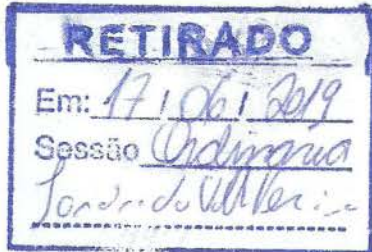 RETIRADO
Em: 17 / 06 / 2019
Sessão Ordinaria